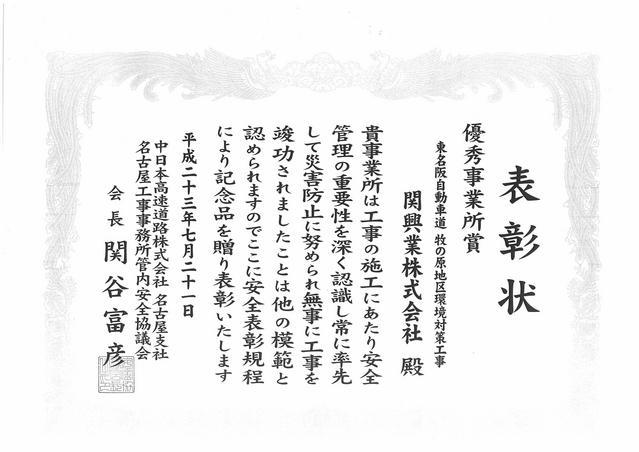 表彰状
優秀事業所賞
東名阪自動車道 牧の原地区環境対策工事
関興業株式会社 殿
貴事業所は工事の施工にあたり安全
管理の重要性を深く認識し常に率先
して災害防止に努められ無事に工事を
竣功されましたことは他の模範と
認められますのでここに安全表彰規程
により記念品を贈り表彰いたします
平成二十三年七月二十一日
中日本高速道路株式会社 名古屋支社
名古屋工事事務所管内安全協議会
会長 関谷富彦